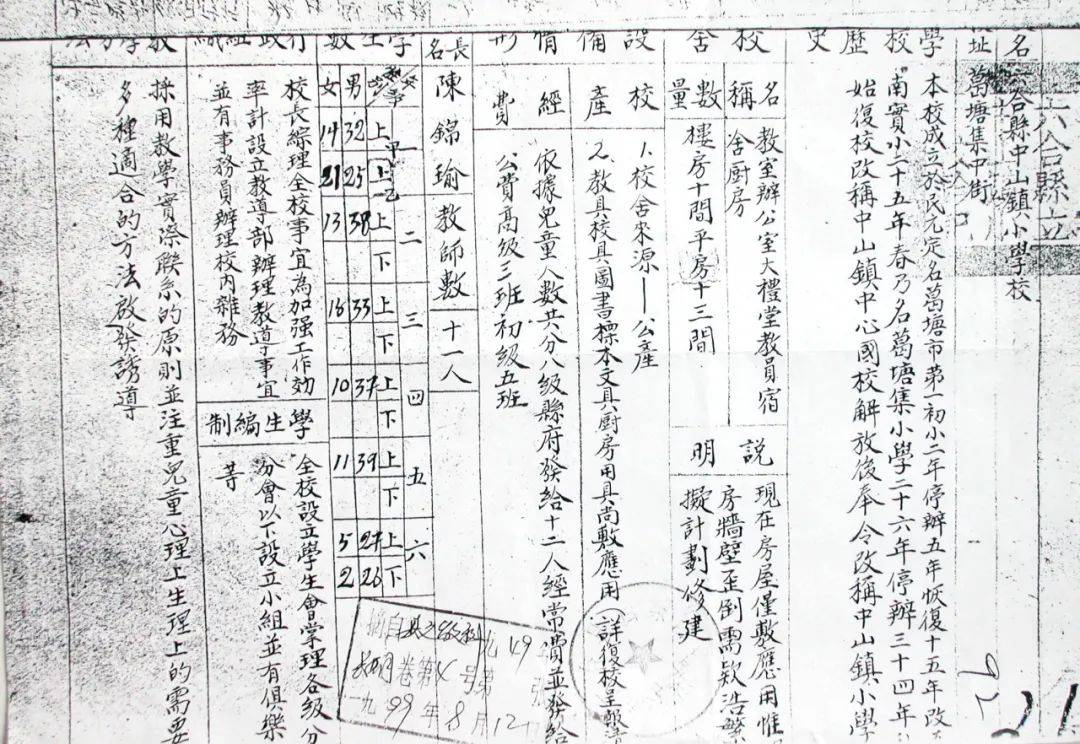 六合縣立
名
六合縣中山鎮小學校
校址
葛塘集中街
學校歷史
本校成立於民元定名葛塘市第一初小二年停辦五年恢復十五年改
南實小二十五年春乃名葛塘集小學二十六年停辦三十四年
始復校改稱中山鎮中心國校解放後奉令改稱中山鎮小學
校舍
名稱
教室辦公室大禮堂教員宿
舍厨房
數量
樓房十間平房十三間
說明
現在房屋僅敷應用惟
房牆壁歪倒需欵浩繁
擬計劃修建
設備情形
校產
1.校舍來源——公產
2.教具校具圖書標本文具厨房用具尚敷應用(詳復校呈報清
經費
依據兒童人數共分八級縣府發給十二人經常費並發給
公費高級三班初級五班
校長名
陳錦瑜
教師數
十一人
學生數
一 二 三 四 五 六
上甲 上乙 上 下 上 下 上 下 上 下 上 下
男 32 25 38 33 37 39 27 26
女 14 21 13 16 10 11 5 2
行政組織
校長綜理全校事宜為加强工作効
率計設立教導部辦理教導事宜
並有事務員辦理校內雜務
學生編制
全校設立學生會掌理各級分
分會以下設立小組並有俱樂
等
教學方法
採用教學實際聯系的原則並注重兒童心理上生理上的需要
多種適合的方法啟發誘導
摘自
49
卷第4号
一九99年8月12日
92